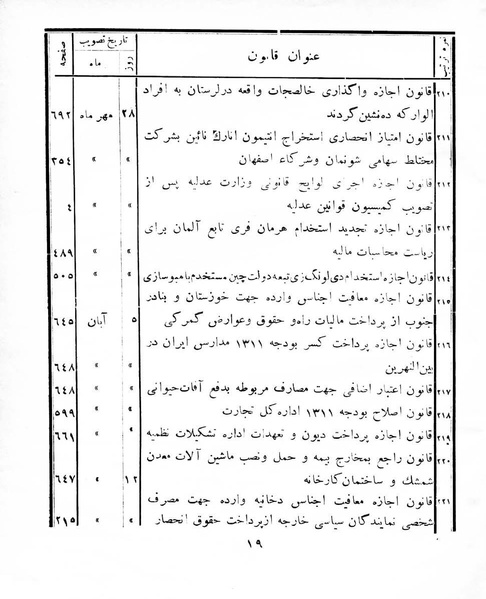 نمره ترتیب	عنوان قانون	تاریخ تصویب	صفحه
روز	ماه
۲۱۰	قانون اجازه واگذاری خالصجات واقعه درلرستان به افراد
الوار که ده‌نشین گردند	۲۸	مهر ماه	۶۹۲
۲۱۱	قانون امتیاز انحصاری استخراج انتیمون انارك نائین بشرکت
مختلط سهامی شونمان وشرکاء اصفهان	»	»	۳۵۴
۲۱۲	قانون اجازه اجری لوایح قانونی وزارت عدلیه پس از
تصویب کمیسیون قوانین عدلیه	»	»	۴
۲۱۳	قانون اجازه تجدید استخدام هرمان فری تابع آلمان برای
ریاست محاسبات مالیه	»	»	۴۸۹
۲۱۴	قانون اجازه استخدام دی لونگ زی تبعه دولت چین مستخدم بامبوسازی	»	»	۵۰۵
۲۱۵	قانون اجازه معافیت اجناس وارده جهت خوزستان و بنادر
جنوب از پرداخت مالیات راه و حقوق وعوارض گمرکی	۵	آبان	۶۴۵
۲۱۶	قانون اجازه پرداخت کسر بودجه ۱۳۱۱ مدارس ایران در
بین‌النهرین	»	»	۶۴۸
۲۱۷	قانون اعتبار اضافی جهت مصارف مربوطه بدفع آفات حیوانی	»	»	۶۴۸
۲۱۸	قانون اصلاح بودجه ۱۳۱۱ اداره کل تجارت	»	»	۵۹۹
۲۱۹	قانون اجازه پرداخت دیون و تعهدات اداره تشکیلات نظمیه	»	»	۶۶۱
۲۲۰	قانون راجع بمخارج بیمه و حمل ونصب ماشین آلات معدن
شمشك و ساختمان کارخانه	۱۲	»	۶۴۷
۲۲۱	قانون اجازه معافیت اجناس دخانیه وارده جهت مصرف
شخصی نمایندگان سیاسی خارجه از پرداخت حقوق انحصار	»	»	۲۱۵
۱۹